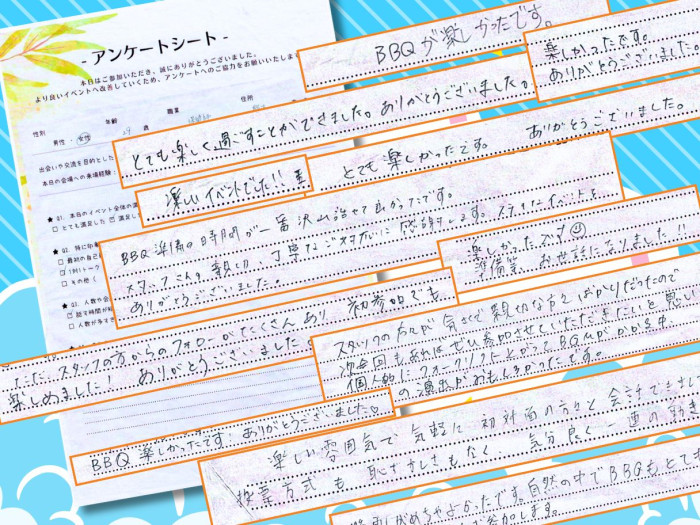 - アンケートシート -
本日はご参加いただき、誠にありがとうございました。
より良いイベントへ改善していくため、アンケートへのご協力をお願いいたします
性別
年齢
職業
住所
男性 ・ 女性
歳
出会いや交流を目的とした
本日の会場への来場経験：
★ Q1. 本日のイベント全体の満
□ とても満足した
★ Q2. 特に印象
□ 最初の自己
1対1トーク
□ その他（
★ Q3. 人数や会
話す時間が
□ 人数が多す
BBQが楽しかったです。
楽しかったです。
ありがとうございました
とても楽しく過ごすことができました。ありがとうございました。
とても楽しかったです。 ありがとうございました。
楽しいイベントでした!!
BBQ準備の時間が一番沢山話せて良かったです。
スタッフさんの親切、丁寧なご対応に感謝します。ステキなイベントを
ありがとうございました。
楽しかったです
準備等、お世話になりました!!
スタッフの方からのフォローがたくさんあり 初参加でも
楽しめました! ありがとうございました
スタッフの方々が気さくで親切な方々ばかりだったので
次回もあればぜひ参加させていただきたいと思い
個人的にフォークリフト上がってBGMがかかる中
の演出がおもしろかったです。
BBQ楽しかったです! ありがとうございました♡
楽しい雰囲気で気軽に初対面の方々と会話できました
投票方式も恥ずかしさもなく、気分良く
自然の中でBBQもとても
参加します。